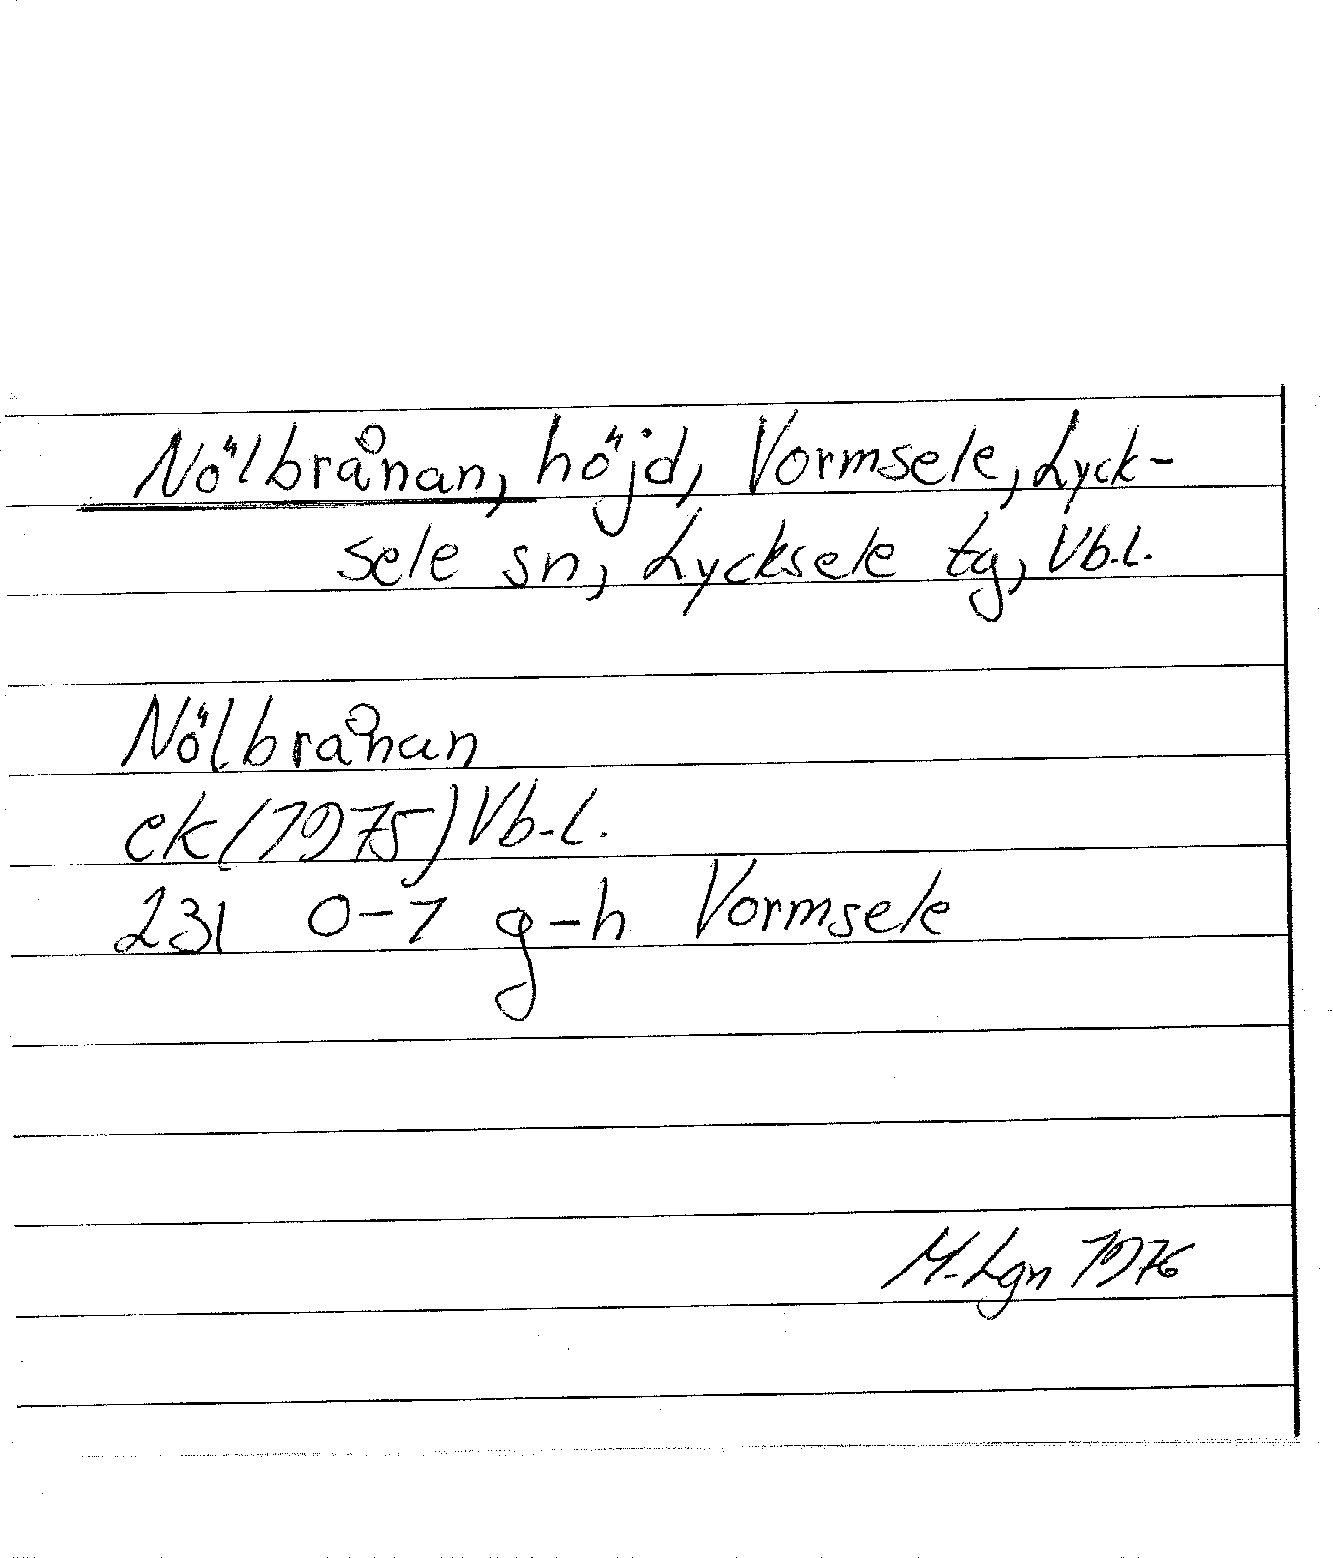 Nölbrånan, höjd, Vormsele, Lyck-
sele sn, Lycksele tg, Vb.l.
Nölbrånan
ek (1975) Vb.l.
231 0-1 g-h Vormsele
M. Lgn 1976